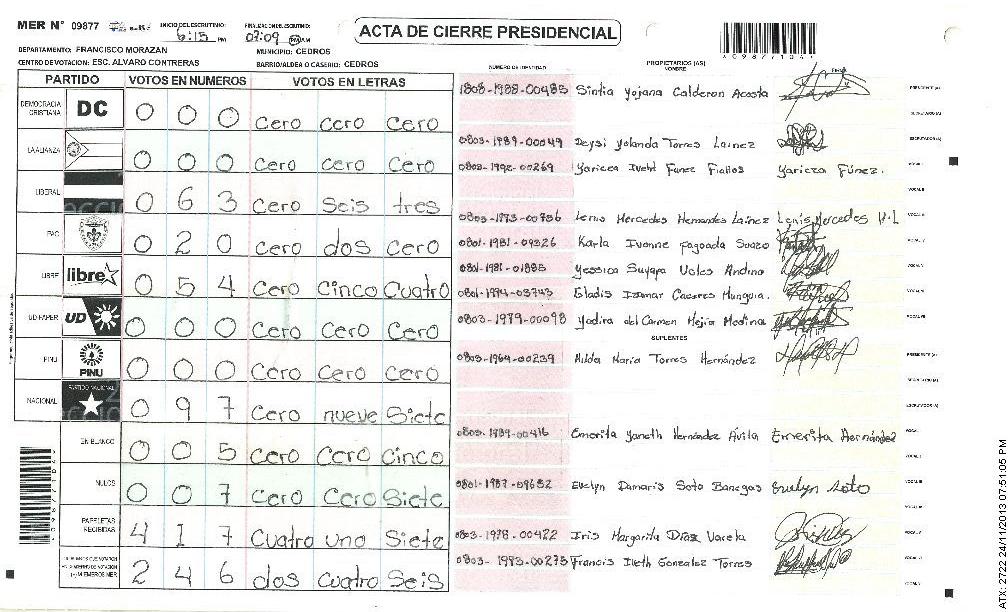 MER N° 09877 INICIO DEL ESCRUTINIO: 6:15 PM FINALIZACION ESCRUTINIO: 07:09 PM AM
ACTA DE CIERRE PRESIDENCIAL
DEPARTAMENTO: FRANCISCO MORAZAN MUNICIPIO: CEDROS
CENTRO DE VOTACION: ESC. ALVARO CONTRERAS BARRIO/ALDEA O CASERIO: CEDROS
PARTIDO VOTOS EN NUMEROS VOTOS EN LETRAS
DEMOCRACIA CRISTIANA DC 0 0 0 cero cero cero
LA ALIANZA 0 0 0 cero cero cero
LIBERAL 0 6 3 cero seis tres
PAC 0 2 0 cero dos cero
LIBRE libre 0 5 4 cero cinco cuatro
UD FAPER UD 0 0 0 cero cero cero
PINU PINU 0 0 0 cero cero cero
NACIONAL PARTIDO NACIONAL 0 9 7 cero nueve siete
EN BLANCO 0 0 5 cero cero cinco
NULOS 0 0 7 cero cero siete
PAPELETAS RECIBIDAS 4 1 7 cuatro uno siete
2 4 6 dos cuatro seis
NUMERO DE IDENTIDAD PROPIETARIOS (AS) NOMBRE FIRMA
1808-1988-00483 Sintia Yojana Calderon Acosta PRESIDENTE (A)
SECRETARIO (A)
0803-1989-00049 Deysi Yolanda Torres Lainez ESCRUTADOR (A)
0803-1992-00269 Yaricza Iveht Funez Fiallos Yaricza Fúnez. VOCAL I
VOCAL II
0803-1973-00736 Lenis Mercedes Hernandes Lainez Lenis Mercedes H.L
0801-1981-09326 Karla Ivonne Fagoada Suazo
0801-1981-01885 Yessica Suyapa Valos Andino
0801-1974-03743 Gladis Izamar Caceres Munguia.
0803-1979-00098 Yadira del Carmen Mejia Medina
SUPLENTES
0803-1964-00239 Nilda Maria Torres Hernández PRESIDENTE (A)
SECRETARIO (A)
ESCRUTADOR (A)
0803-1989-00416 Emerita Yaneth Hernández Ávila Emerita Hernández
0801-1987-09652 Evelyn Damaris Soto Banegas Evelyn Soto
0803-1978-00422 Iris Margarita Díaz Varela
0803-1983-00273 Francis Iveth Gonzalez Torres
ATX: 2722 24/11/2013 07:51:05 PM